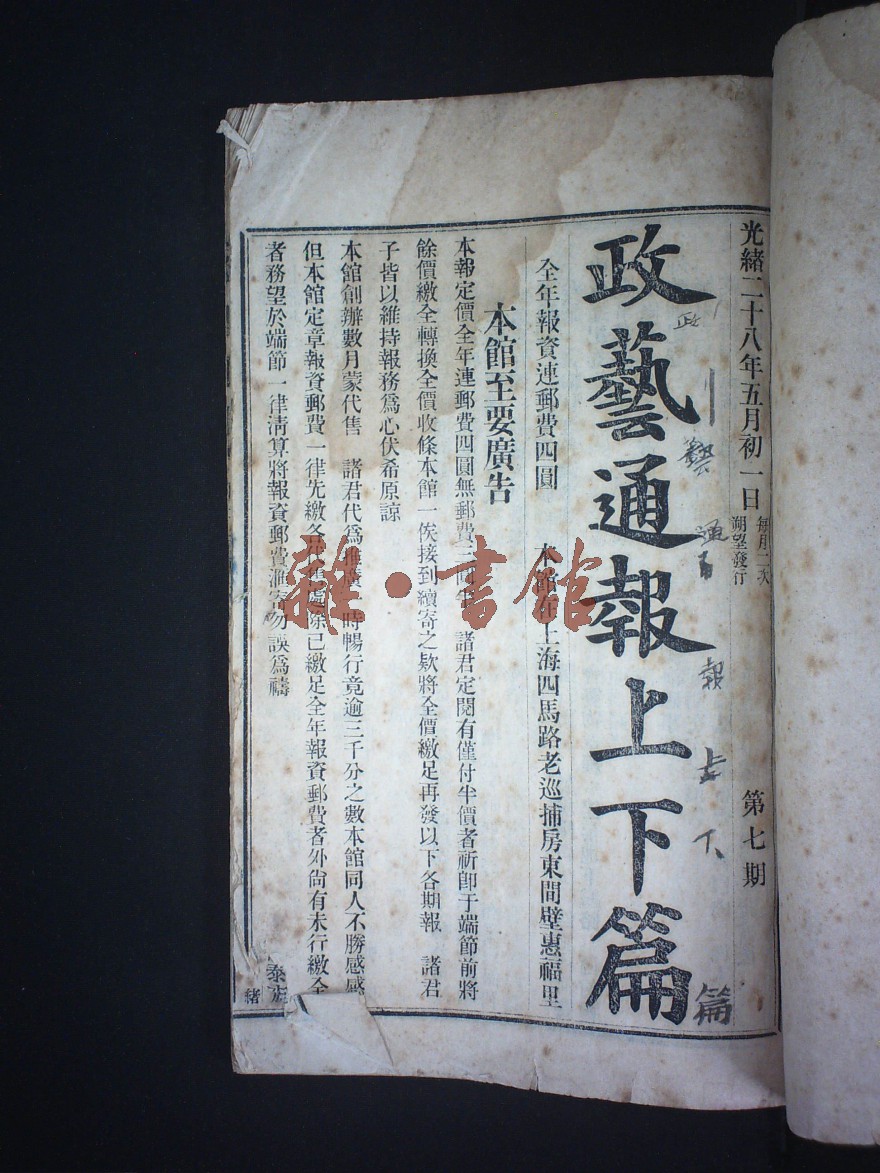 光緒二十八年五月初一日 每月二次 朔望發行 第七期
政藝通報上下篇
政藝通報上下篇
全年報資連郵費四圓 本館在上海四馬路老巡捕房東間壁惠福里
本館至要廣告
本報定價全年連郵費四圓無郵費三圓 諸君定閱有僅付半價者祈即于端節前將
餘價繳全轉換全價收條本館一俟接到續寄之欵將全價繳足再發以下各期報 諸君
子皆以維持報務爲心伏希原諒
本館創辦數月蒙代售 諸君代爲推廣 時暢行竟逾三千分之數本館同人不勝感感
但本館定章報資郵費一律先繳各代售處除已繳足全年報資郵費者外尙有未行繳全
者務望於端節一律清算將報資郵費滙寄勿誤爲禱
緒
雜·書館